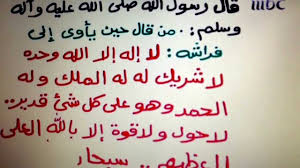 mbc
قال رسول الله صلى الله عليه وآله
وسلم: . من قال حين يأوى إلى
فراشه: لا إله إلا الله وحده
لا شريك له له الملك وله
الحمد وهو على كل شئ قدير..
لا حول ولا قوة إلا بالله العلى
العظيم .. سبحا